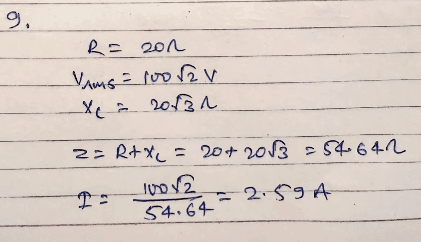 9.
R = 20Ω
Vrms = 100√2 V
X_L = 20√3 Ω
Z = R + X_L = 20 + 20√3 = 54.64Ω
I = 100√2 / 54.64 = 2.59 A